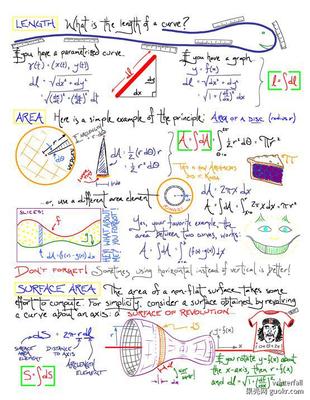 LENGTH What is the length of a curve?
If you have a parametrized curve.
γ(t) = (x(t), y(t))
dl = √dx² + dy²
= √(dx/dt)² + (dy/dt)² dt
dl
dy
dx
If you have a graph
y = f(x)
dl = √dx² + dy²
= √1 + (df/dx)² dx
l = ∫dl
AREA Here is a simple example of the principle: AREA OF A DISC (radius r)
dθ
dA = ½ r (r dθ)
= ½ r² dθ
A = ∫dA = ∫ ½ r² dθ = πr²
...or, use a different area element
dA = 2πx dx
A = ∫dA = ∫ 2πx dx = πr²
SLICES:
f
g
dx
dA = (f(x) - g(x)) dx
Yes, your favorite example
area between two curves, works:
A = ∫dA = ∫ (f(x) - g(x)) dx
DON'T FORGET! Sometimes, using horizontal instead of vertical is better!
SURFACE AREA The area of a non-flat surface takes some
effort to compute. For simplicity, consider a surface obtained by revolving
a curve about an axis: a SURFACE OF REVOLUTION...
dS = 2πr dl
SURFACE AREA ELEMENT
DISTANCE TO AXIS
ARCLENGTH ELEMENT
S = ∫dS
y = f(x)
If you rotate y = f(x) about
the x-axis, then r = f(x)
and dl = √1 + (df/dx)² dx
waterfall
果壳网 guokr.com